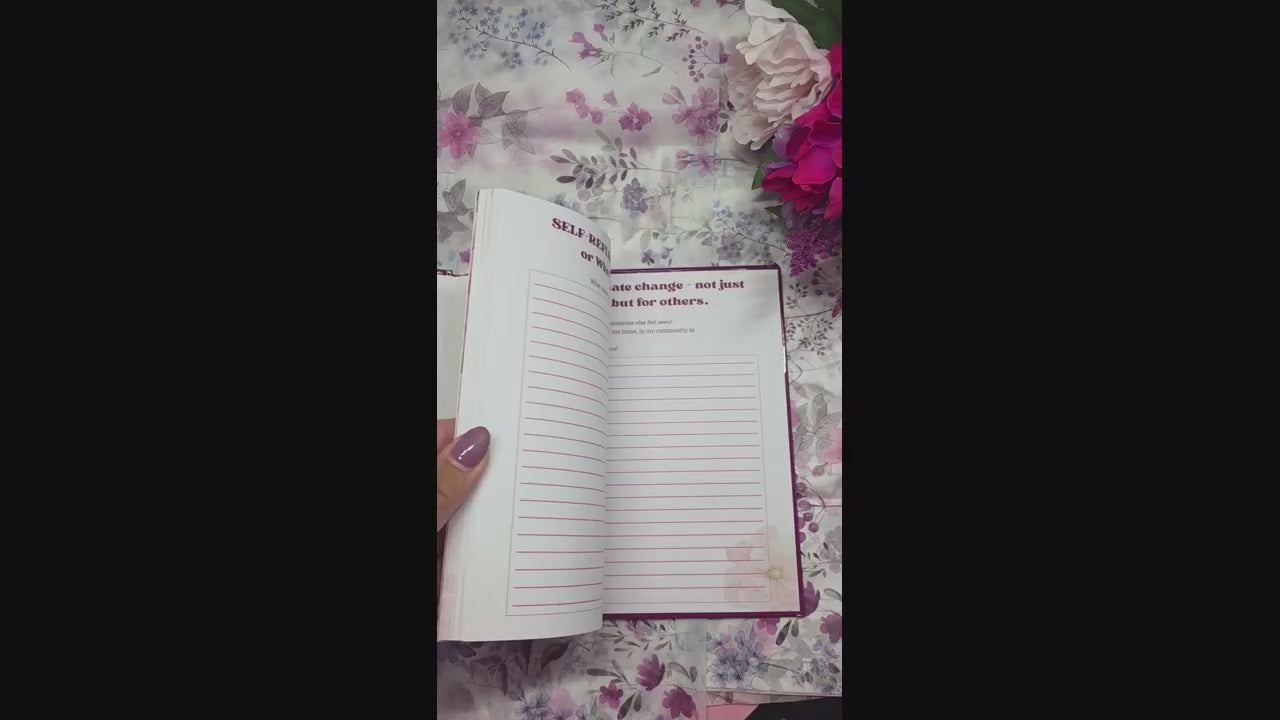 SELF-REF
or W
What
ate change - not just
but for others.
someone else feel seen?
my home, in my community, in